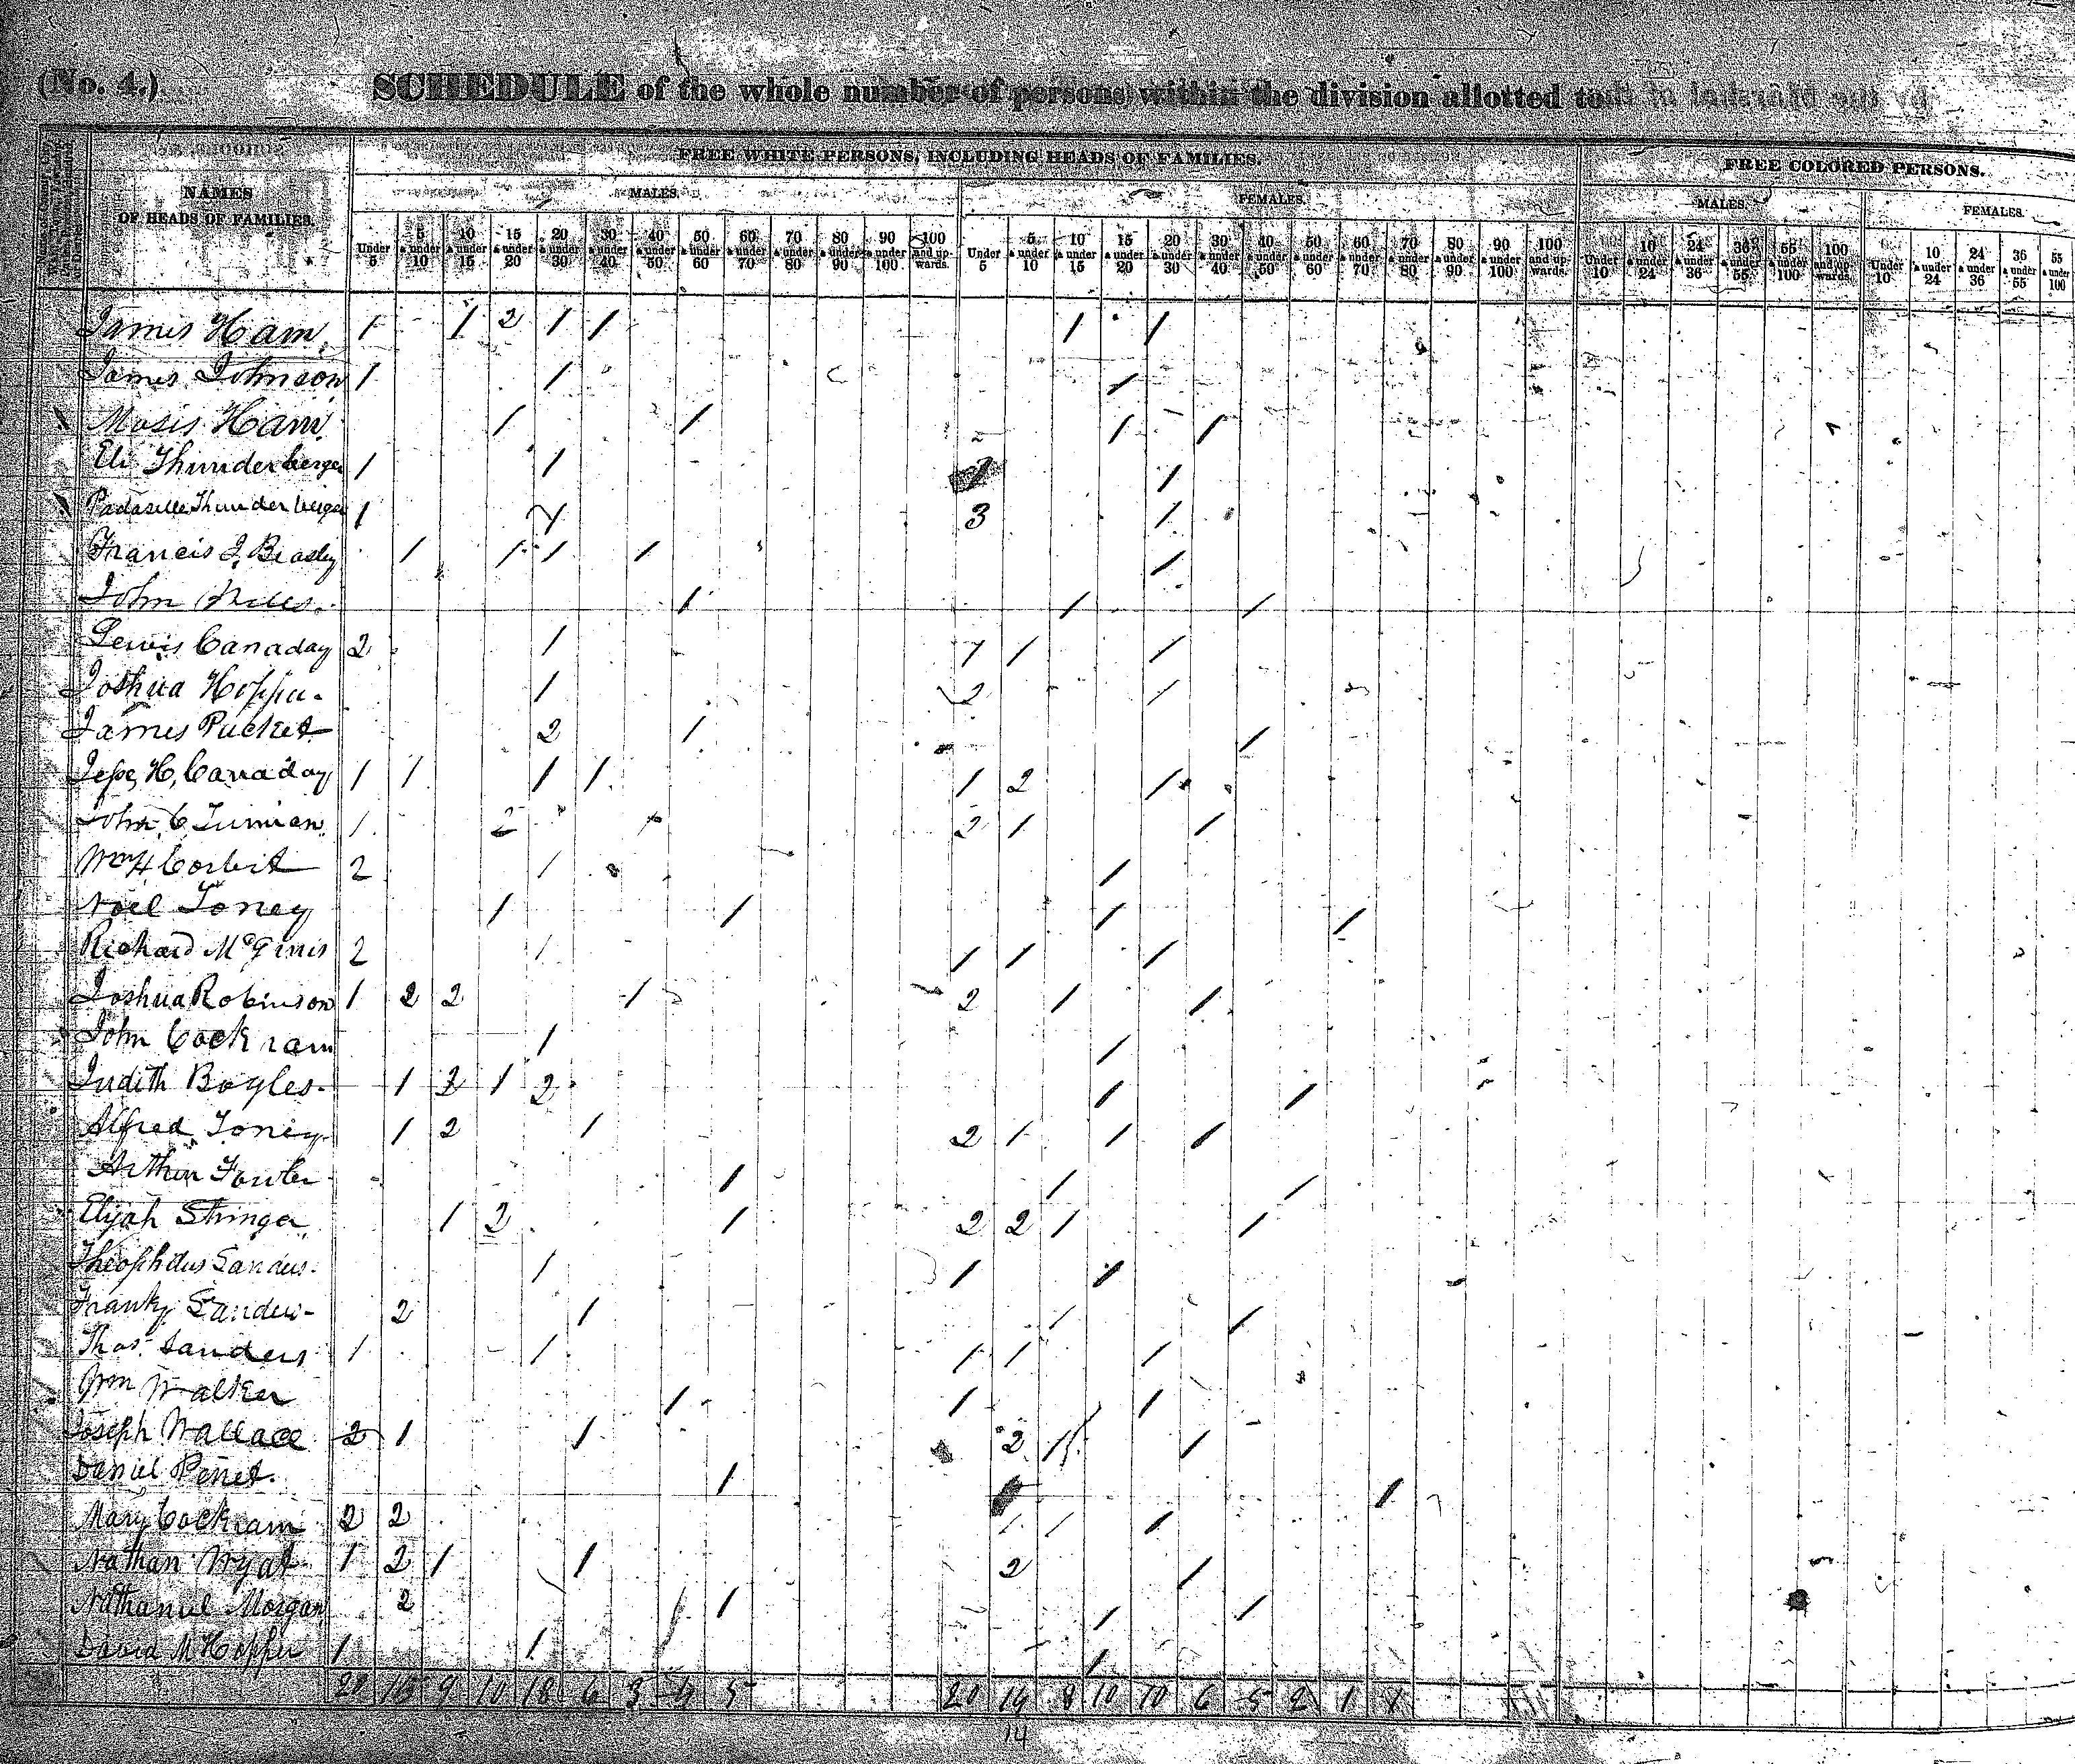 (No. 4.) SCHEDULE of the whole number of persons within the division allotted to
NAMES OF HEADS OF FAMILIES.
FREE WHITE PERSONS, INCLUDING HEADS OF FAMILIES.
FREE COLORED PERSONS.
MALES. FEMALES. MALES. FEMALES.
Under 5 5 & under 10 10 & under 15 15 & under 20 20 & under 30 30 & under 40 40 & under 50 50 & under 60 60 & under 70 70 & under 80 80 & under 90 90 & under 100 100 and upwards. Under 5 5 & under 10 10 & under 15 15 & under 20 20 & under 30 30 & under 40 40 & under 50 50 & under 60 60 & under 70 70 & under 80 80 & under 90 90 & under 100 100 and upwards. Under 10 10 & under 24 24 & under 36 36 & under 55 55 & under 100 100 and upwards. Under 10 10 & under 24 24 & under 36 36 & under 55 55 & under 100
James Ham 1 1 2 1 1 1 1
James Johnson 1 1 1
Mosis Ham 1 1 1 1
Eli Thunderberger 1 1 1
Thunderberger 1 3 1
Francis J. Beasley 1 1 1 1 1
John 1 1 1
Lewis Canaday 2 1 1 1 1
Joshua Hopper 1 2 1
James Pucket 2 1 1
Jesse H. Canaday 1 1 1 1 1 2 1
John C 1 2 1 2 1 1
Wm H Corbit 2 1 1
Noel Toney 1 1 1 1
Richard McGinis 2 1 1 1 1
Joshua Robinson 1 2 2 1 2 1 1
John Cockram 1 1
Judith Boyles 1 2 1 2 1 1
Alfred Toney 1 2 1 2 1 1 1
Arthur Fowler 1 1 1
Elijah Stringer 1 2 1 2 2 1 1
Theophilus Sanders 1 1 1
Franky Sanders 2 1 1 1
Thos. Sanders 1 1 1 1 1
Wm Walker 1 1 1
Joseph Wallace 2 1 1 2 1 1
Daniel Penet 1 1
Mary Cockram 2 2 1 1 1
Nathan Wyat 1 2 1 1 2 1
Nathaniel Morgan 2 1 1 1
David M Hopper 1 1 1
20 15 9 10 18 6 3 4 5 20 14 8 10 10 6 5 2 1 1
14